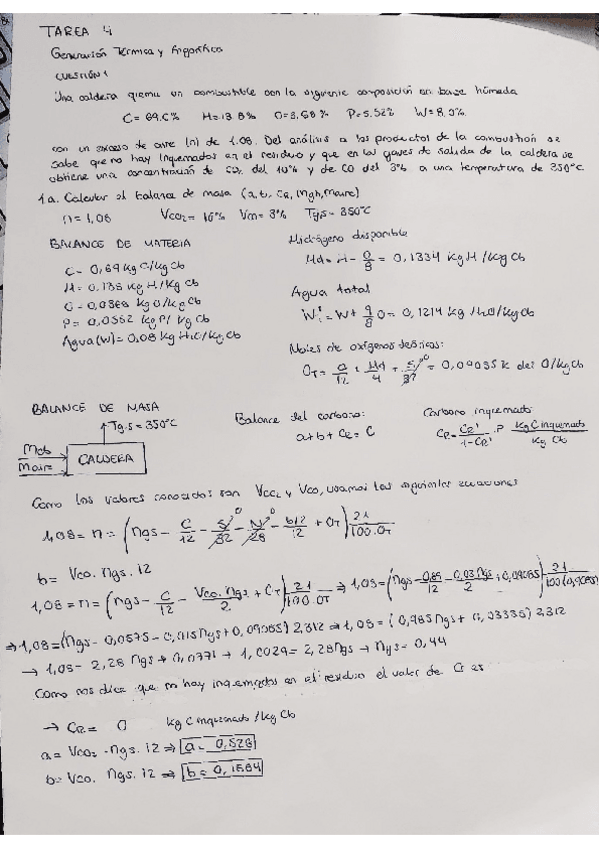 TAREA 4
Generación Térmica y Frigorífica
CUESTIÓN 1
Una caldera quema un combustible con la siguiente composición en base húmeda
C= 69.0% H=13.8% O=3.68% P=5.52% W=8.0%
con un exceso de aire (n) de 1.08. Del análisis a los productos de la combustión se
sabe que no hay inquemados en el residuo y que en los gases de salida de la caldera se
obtiene una concentración de CO2 del 10% y de CO del 3% a una temperatura de 350°C
1a. Calcular el balance de masa (a, b, CR, Mgh, Maire)
n=1,08 Vco2= 10% Vco= 3% Tg,s= 350°C
BALANCE DE MATERIA
C= 0,69 kg C/kg Cb
H= 0,138 kg H/kg Cb
O= 0,0368 kg O/kg Cb
P= 0,0552 kg P/ kg Cb
Agua(W)= 0,08 kg H2O/kg Cb
Hidrógeno disponible
Hd= H - O/8 = 0,1334 kg H/kg Cb
Agua total
W'= W+ 9/8 O= 0,1214 kg H2O/kg Cb
Moles de oxígeno teóricos:
OT= C/12 + Hd/4 + S/32 = 0,09085 k de O/kg Cb
BALANCE DE MASA
Tg.s = 350°C
Mcb
Maire
CALDERA
Balance del carbono:
a+b+CR= C
Carbono inquemado
CR= CR'/1-CR' .P kg C inquemado/kg Cb
Como los valores conocidos son Vco2 y Vco, usamos las siguientes ecuaciones
1,08= n= (ngs - C/12 - S/32 - N/28 - b/2/12 + OT) 21/100.OT
b= Vco. ngs. 12
1,08= n= (ngs - C/12 - Vco.ngs/2 + OT) 21/100.OT ⇒ 1,08= (ngs - 0,69/12 - 0,03ngs/2 + 0,09085) 21/100(0,9085)
⇒ 1,08=(ngs- 0,0575- 0,015ngs+0,09085) 2,312 ⇒ 1,08= (0,985ngs+ 0,03335) 2,312
→ 1,08- 2,28 ngs + 0,0771 → 1,0029= 2,28ngs → ngs= 0,44
Como nos dice que no hay inquemados en el residuo el valor de Cr es
→ CR= 0 kg C inquemado/kg Cb
a= Vco2 . ngs. 12 ⇒ a= 0,528
b= Vco. ngs. 12 ⇒ b= 0,1584